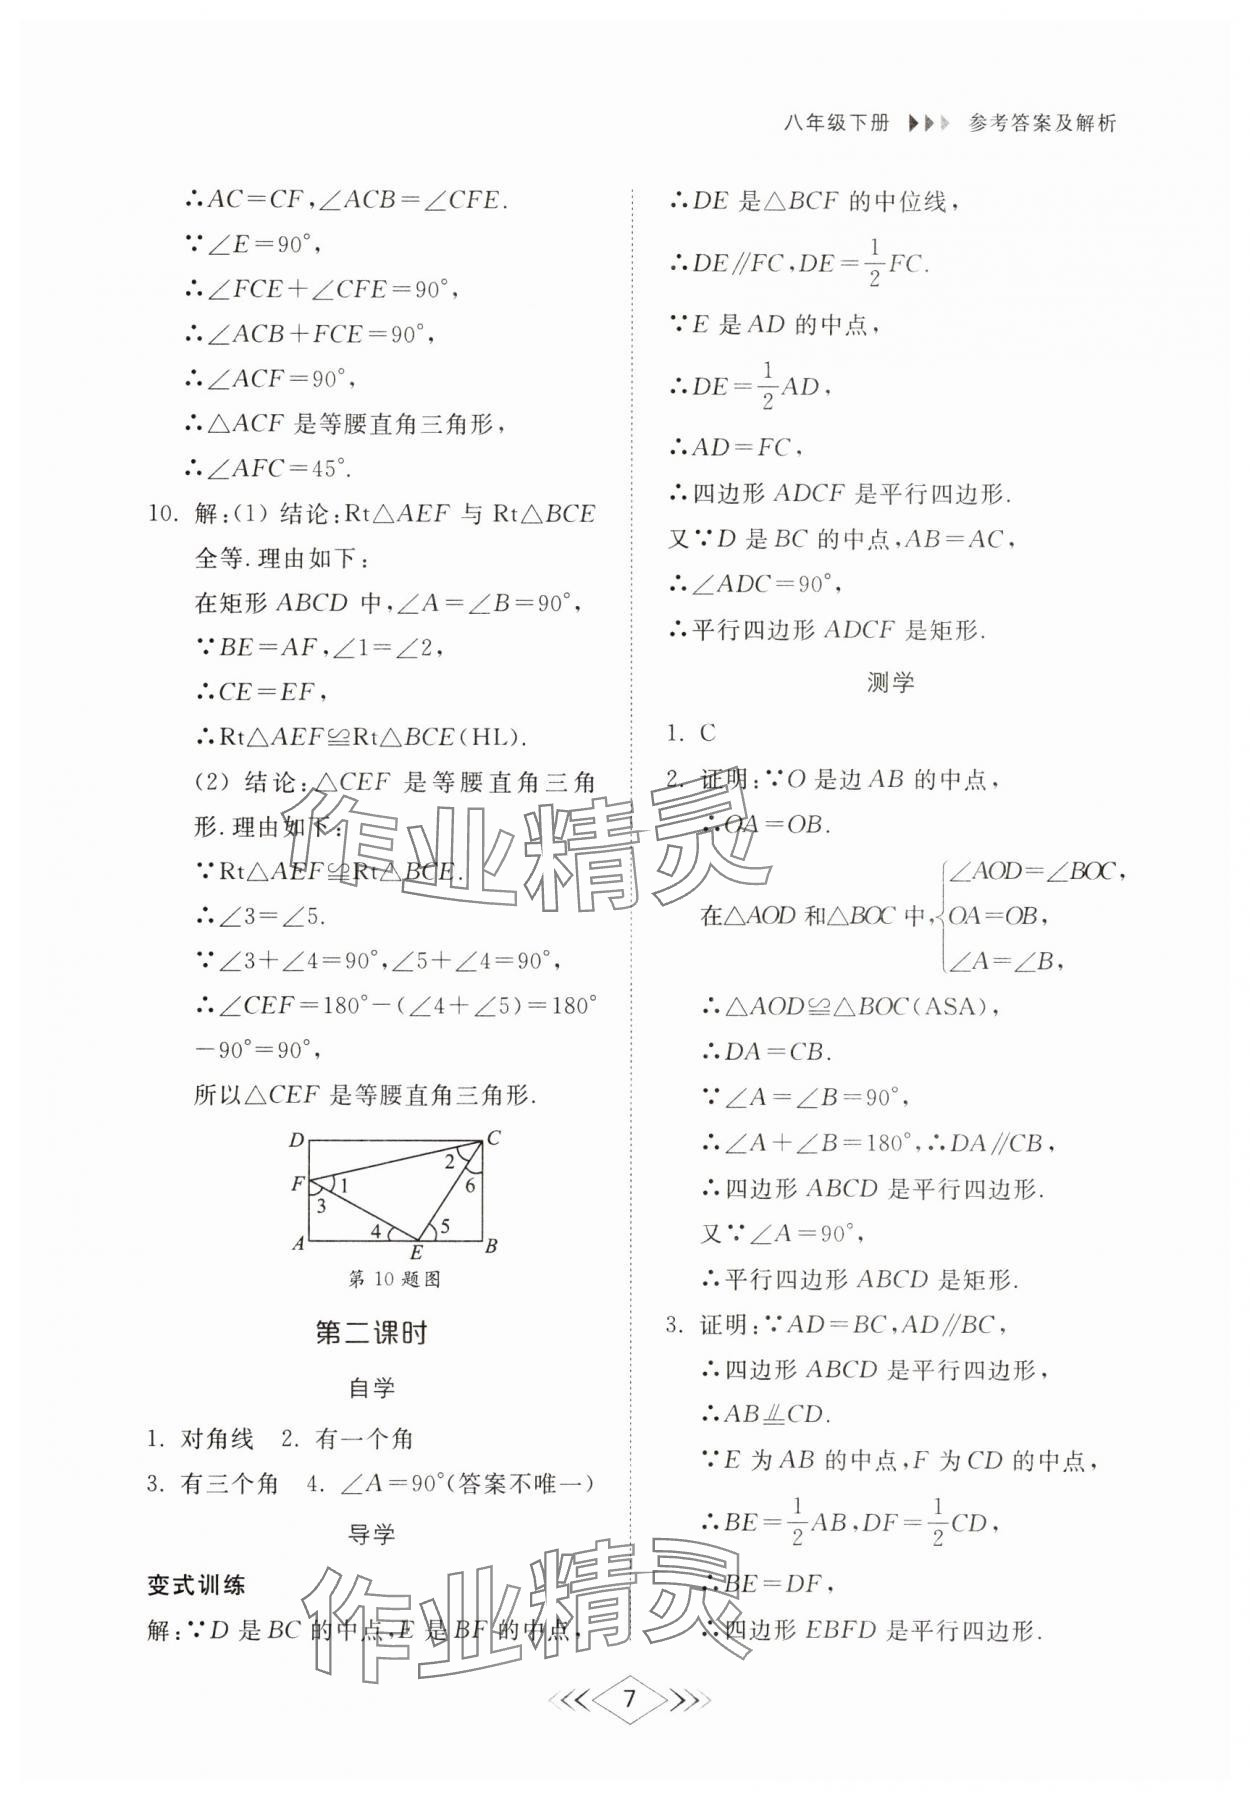 八年级下册 参考答案及解析
∴AC=CF,∠ACB=∠CFE.
∵∠E=90°,
∴∠FCE+∠CFE=90°,
∴∠ACB+FCE=90°,
∴∠ACF=90°,
∴△ACF 是等腰直角三角形,
∴∠AFC=45°.
10. 解:(1) 结论:Rt△AEF 与 Rt△BCE
全等.理由如下:
在矩形 ABCD 中,∠A=∠B=90°,
∵BE=AF,∠1=∠2,
∴CE=EF,
∴Rt△AEF≌Rt△BCE(HL).
(2) 结论:△CEF 是等腰直角三角
形.理由如下:
∵Rt△AEF≌Rt△BCE.
∴∠3=∠5.
∵∠3+∠4=90°,∠5+∠4=90°,
∴∠CEF=180°-(∠4+∠5)=180°
-90°=90°,
所以△CEF 是等腰直角三角形.
D C
2
F 1 6
3
4 5
A E B
第 10 题图
第二课时
自学
1. 对角线 2. 有一个角
3. 有三个角 4. ∠A=90°(答案不唯一)
导学
变式训练
解:∵D 是 BC 的中点,E 是 BF 的中点,
∴DE 是△BCF 的中位线,
∴DE∥FC,DE=1/2FC.
∵E 是 AD 的中点,
∴DE=1/2AD,
∴AD=FC,
∴四边形 ADCF 是平行四边形.
又∵D 是 BC 的中点,AB=AC,
∴∠ADC=90°,
∴平行四边形 ADCF 是矩形.
测学
1. C
2. 证明:∵O 是边 AB 的中点,
∴OA=OB.
在△AOD 和△BOC 中,{∠AOD=∠BOC,
OA=OB,
∠A=∠B,
∴△AOD≌△BOC(ASA),
∴DA=CB.
∵∠A=∠B=90°,
∴∠A+∠B=180°,∴DA∥CB,
∴四边形 ABCD 是平行四边形.
又∵∠A=90°,
∴平行四边形 ABCD 是矩形.
3. 证明:∵AD=BC,AD∥BC,
∴四边形 ABCD 是平行四边形,
∴AB⫫CD.
∵E 为 AB 的中点,F 为 CD 的中点,
∴BE=1/2AB,DF=1/2CD,
∴BE=DF,
∴四边形 EBFD 是平行四边形.
7
作业精灵
作业精灵